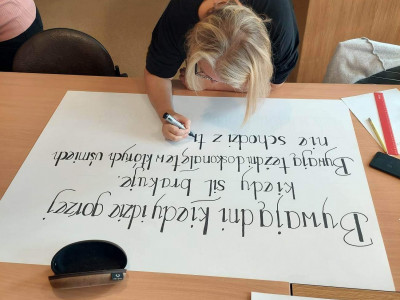 Bywają dni kiedy idzie gorzej
kiedy sił brakuje.
Bywają też dni doskonałe te w których uśmiech
nie schodzi z